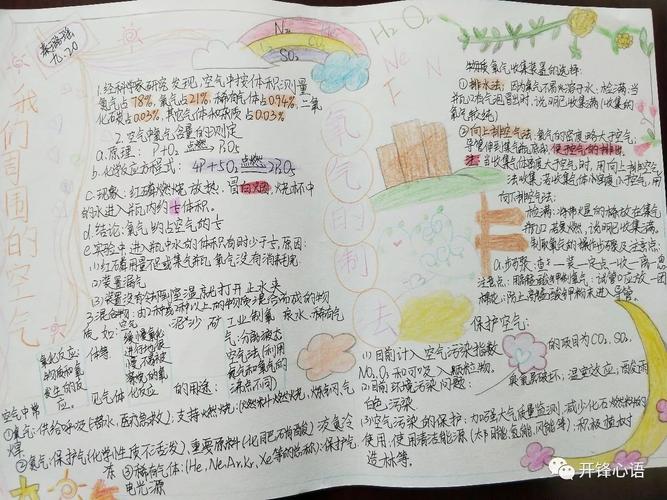 九.20
我们周围的空气
N₂
SO₂
H₂O₂
Ne
氧气的制法
1.经科学家研究发现,空气中按体积测量
氮气占78%,氧气占21%,稀有气体占0.94%,二氧
化碳占0.03%,其它气体和杂质占0.03%
2.空气中氧气含量的测定
a.原理:P+O₂点燃P₂O₅
b.化学反应方程式:4P+5O₂点燃2P₂O₅
c.现象:红磷燃烧放热,冒白烟,烧杯中
的水进入瓶内约1/5体积。
d.结论:氧气约占空气的1/5
e.实验中进入瓶中水的体积有时少于1/5,原因:
(1)红磷用量不足或集气瓶氧气没有消耗完
(2)装置漏气
(3)装置没有冷却到室温就打开止水夹
3.混合物:由2种或2种以上的物质混合而成的物
质,如:空气
工业制氧
氧化反应:
物质和氧
发生的反
应。
缓慢氧化
进行的很
慢不易被
察觉的氧
化反应
气:分离液态
空气法(利用
氮气和氧气的
沸点不同)
空气中常
见气体
的用途:
①氧气:供给呼吸(潜水、医疗急救),支持燃烧(燃料燃烧,炼钢,气
焊
②氮气:保护气(化学性质不活发),重要原料(化肥石硝酸)液氮冷
冻 ③稀有气体:(He,Ne,Ar,Kr,Xe等的总称):保护气
电光源
物质氧气收集装置的选择:
①排水法:因为氧气不易溶于水;检满:当
瓶口有气泡冒出时,说明已收集满(收集的
氧气较纯)
②向上排空气法:氧气的密度略大于空气
导管伸到集气瓶底部,使于空气的排出
法 当收集气体密度大于空气时,用向上排空气
法收集,若收集气体小密度小于空气,用
向下排空气法
检满:将带火星的木条放在集气
瓶口,若复燃,说明已收集满
制取氧气的操作步骤及注意点:
a.步骤:查—装—定—点—收—离—息
保护空气:
(1)目前计入空气污染指数的项目为CO、SO₂、
NO₂、O₃和可吸入颗粒物。
(2)目前环境污染问题:臭氧层破坏;温室效应;酸雨
白色污染
(3)空气污染的保护:加强大气质量监测,减少化石燃料的
使用,使用清洁能源(太阳能,氢能,风能等);积极植树
造林等。
开锋心语